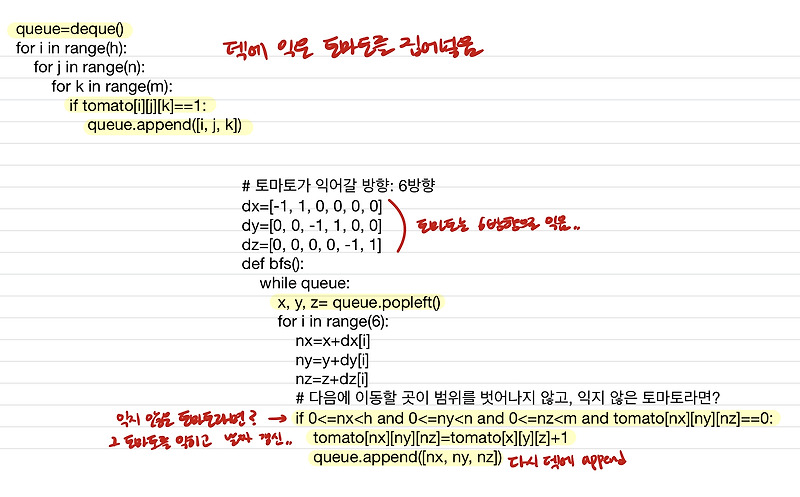 queue=deque()
for i in range(h):
for j in range(n):
for k in range(m):
if tomato[i][j][k]==1:
queue.append([i, j, k])
덱에 익은 토마토를 집어넣음
# 토마토가 익어갈 방향: 6방향
dx=[-1, 1, 0, 0, 0, 0]
dy=[0, 0, -1, 1, 0, 0]
dz=[0, 0, 0, 0, -1, 1]
토마토는 6방향으로 익음..
def bfs():
while queue:
x, y, z= queue.popleft()
for i in range(6):
nx=x+dx[i]
ny=y+dy[i]
nz=z+dz[i]
# 다음에 이동할 곳이 범위를 벗어나지 않고, 익지 않은 토마토라면?
익지 않은 토마토라면? → if 0<=nx<h and 0<=ny<n and 0<=nz<m and tomato[nx][ny][nz]==0:
그 토마토를 익히고 날짜 갱신.. tomato[nx][ny][nz]=tomato[x][y][z]+1
queue.append([nx, ny, nz]) 다시 덱에 append